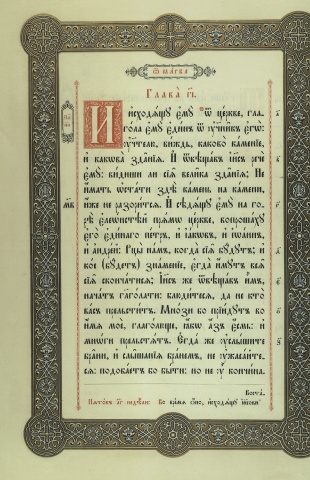 Ѿ МАРКА
Глава̀ г҃і.
Исходѧ́щꙋ є҆мꙋ̀ ѿ це́ркве, гла-
го́ла є҆мꙋ̀ є҆ди́нъ ѿ ᲂу҆чн҃къ є҆гѡ̀:
ᲂу҆чт҃лю, ви́ждь, каково̀ ка́менїе,
и҆ какова̀ зда̑нїѧ. И҆ ѿвѣща́въ і҆и҃съ речѐ
є҆мꙋ̀: ви́диши ли сїѧ̑ вели̑каѧ зда̑нїѧ; Не
и҆́мать ѡ҆ста́ти здѣ̀ ка́мень на ка́мени,
и҆́же не разори́тсѧ. И҆ сѣдѧ́щꙋ є҆мꙋ̀ на го-
рѣ̀ є҆леѡ́нстѣй прѧ́мѡ це́ркве, вопроша́хꙋ
є҆го̀ є҆ди́наго пе́тръ, и҆ і҆а́кѡвъ, и҆ і҆ѡа́ннъ,
и҆ а҆ндре́й: Рцы̀ на́мъ, когда̀ сїѧ̑ бꙋ́дꙋтъ; и҆
ко́е (бꙋ́детъ) зна́менїе, є҆гда̀ и҆́мꙋтъ всѧ̑
сїѧ̑ сконча́тисѧ; І҆и҃съ же ѿвѣща́въ и҆̀мъ,
нача́тъ глаго́лати: блюди́тесѧ, да не кто̀
ва́съ прельсти́тъ. Мно́зи бо прїи́дꙋтъ во
и҆́мѧ моѐ, глаго́люще, ꙗ҆́кѡ а҆́зъ є҆́смь: и҆
мно́ги прельстѧ́тъ. Є҆гда́ же ᲂу҆слы́шите
бра̑ни, и҆ слы̑шанїѧ бра́немъ, не ᲂу҆жаса́йте-
сѧ: подоба́етъ бо бы́ти: но не ᲂу҆̀ кончи́на.